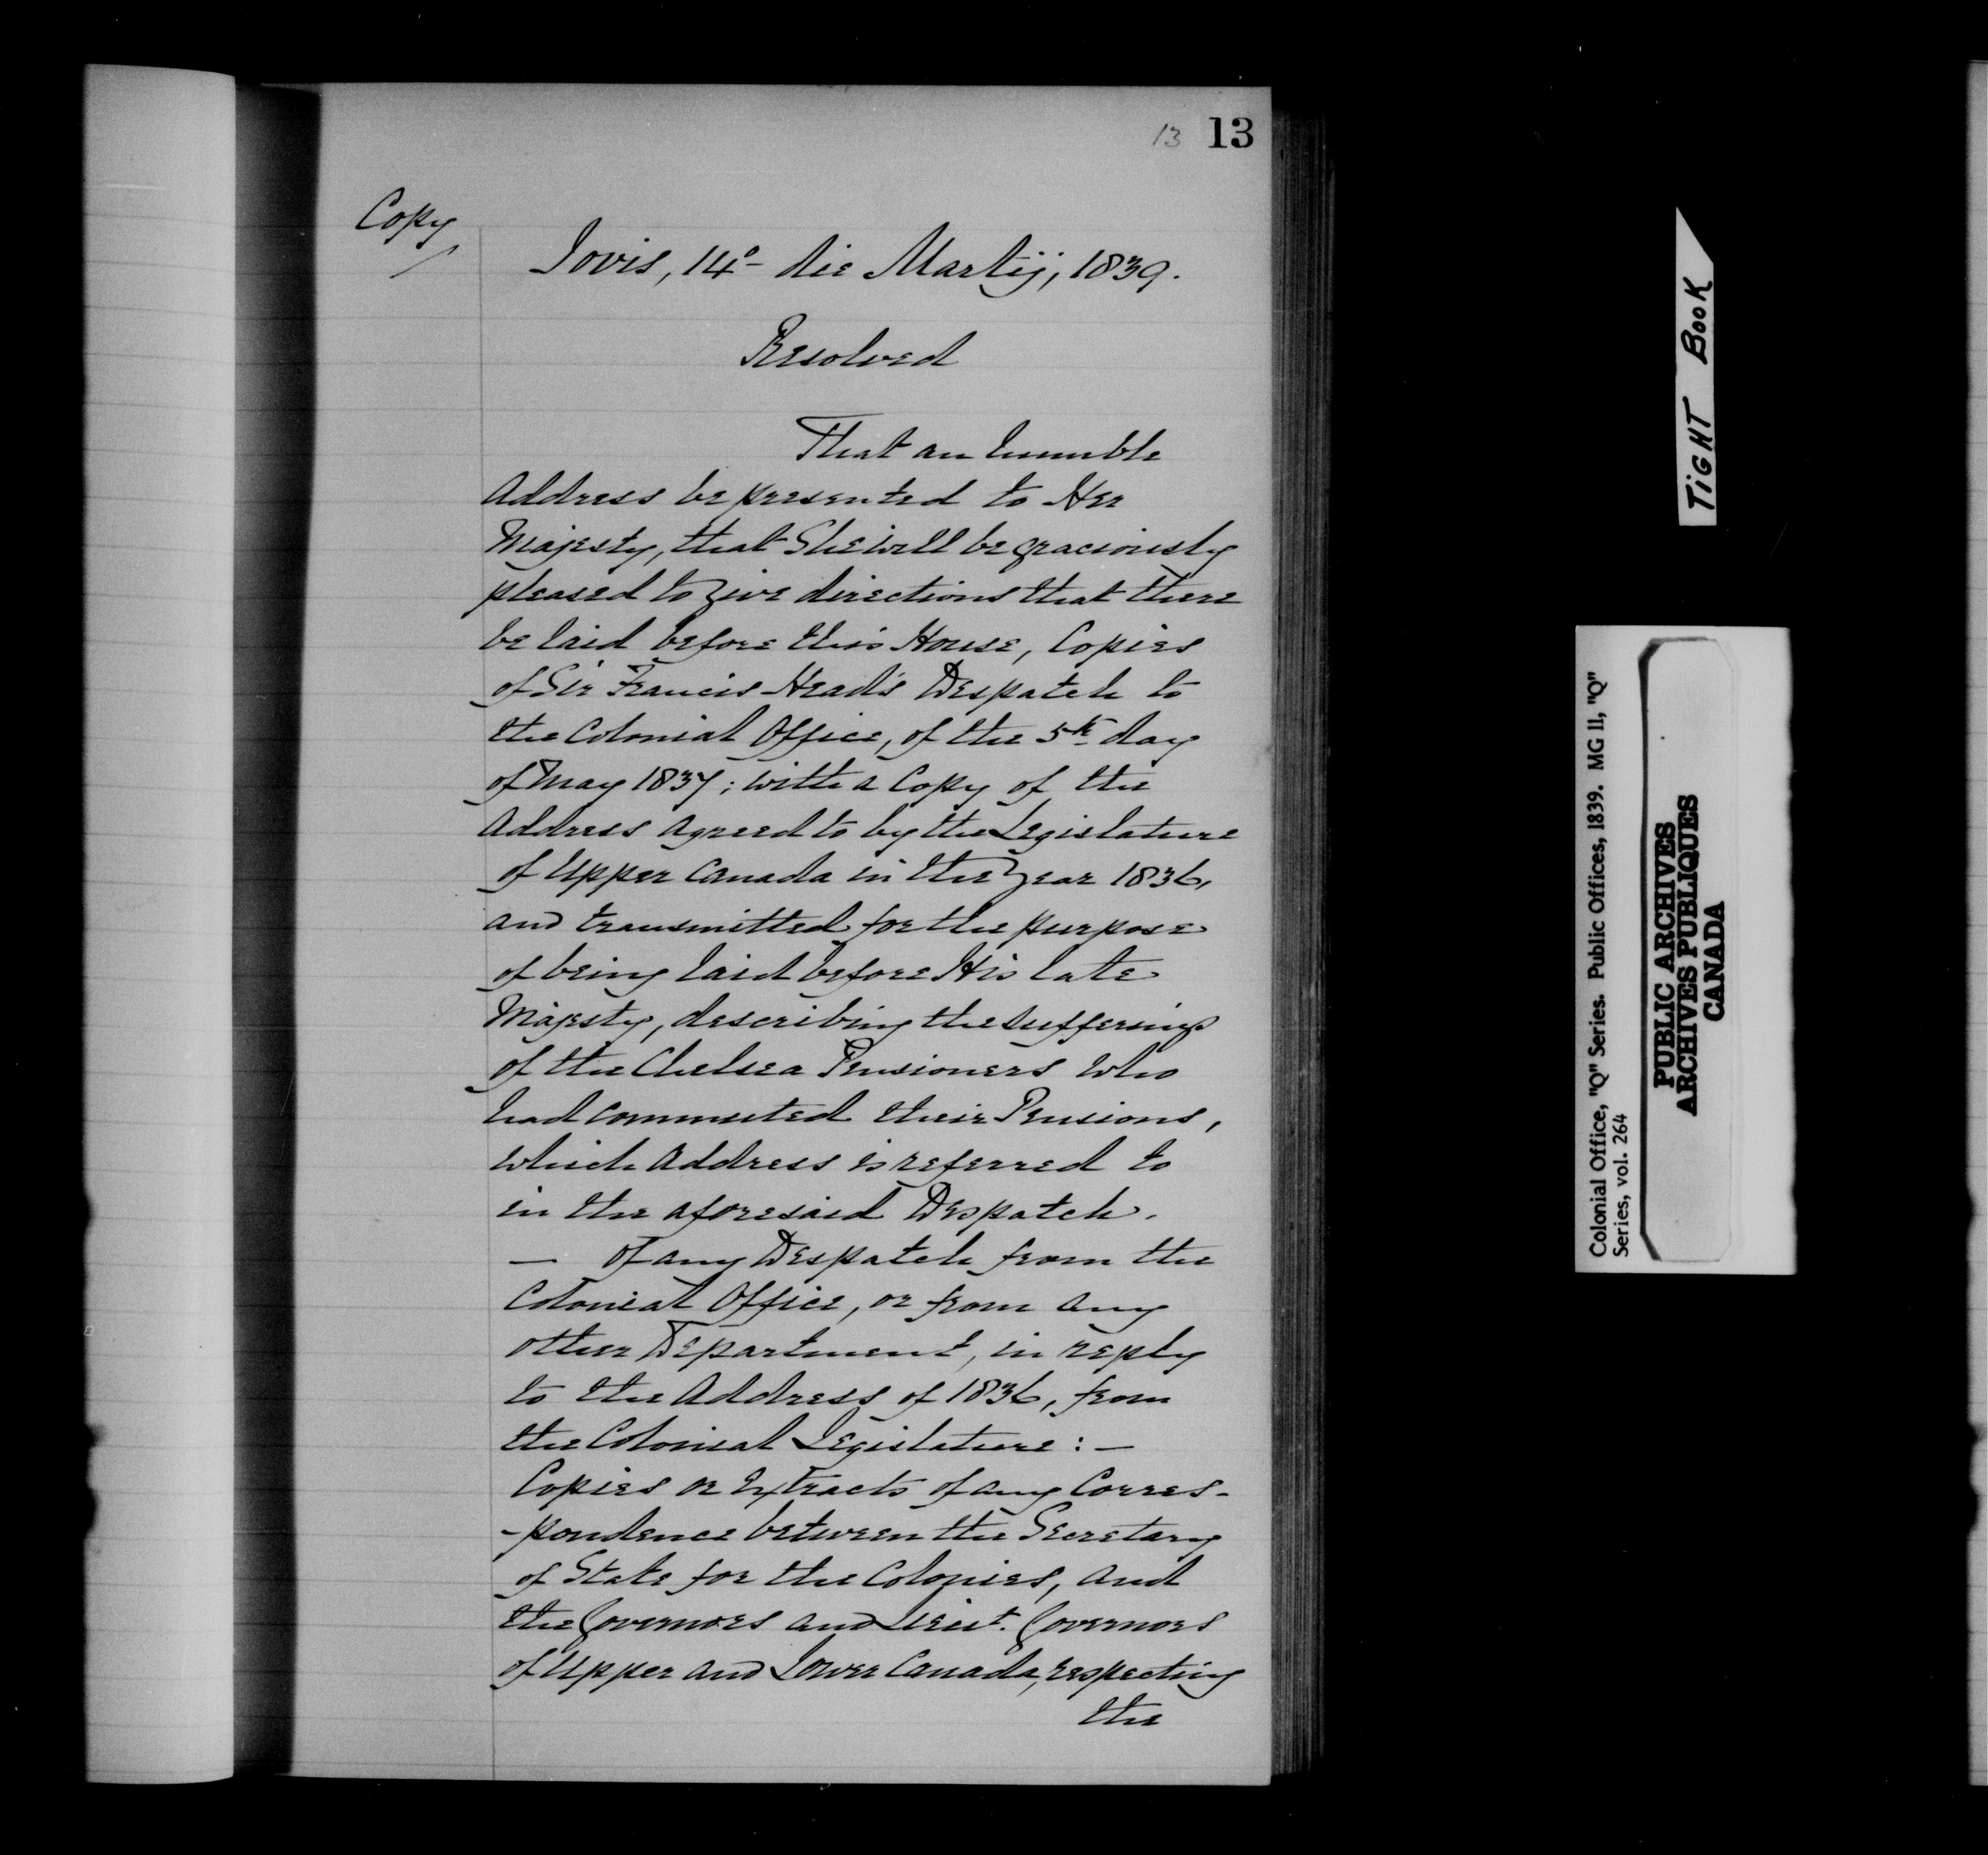 13 13
Copy
Jovis, 14º die Martij, 1839.
Resolved
That an humble
Address be presented to Her
Majesty, that She will be graciously
pleased to give directions that there
be laid before this House, Copies
of Sir Francis Head's Despatch to
the Colonial Office, of the 5th day
of May 1837; with a Copy of the
Address agreed to by the Legislature
of Upper Canada in the Year 1836,
and transmitted for the purpose
of being laid before His late
Majesty, describing the sufferings
of the Chelsea Pensioners who
had commuted their Pensions,
which Address is referred to
in the aforesaid Despatch.
— Of any Despatch from the
Colonial Office, or from any
other Department, in reply
to the Address of 1836, from
the Colonial Legislature:—
Copies or Extracts of any Corres-
-pondence between the Secretary
of State for the Colonies, and
the Governors and Lieut. Governors
of Upper and Lower Canada, respecting
the
TIGHT BOOK
Colonial Office, "Q" Series. Public Offices, 1839. MG 11, "Q"
Series, vol. 264
PUBLIC ARCHIVES
ARCHIVES PUBLIQUES
CANADA